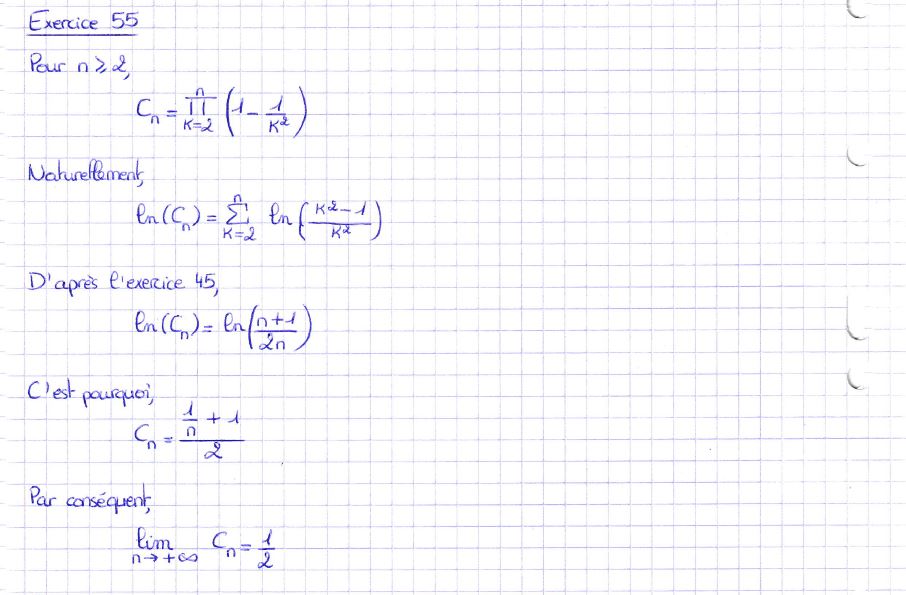 Exercice 55
Pour n ⩾ 2,
C_n = ∏_{K=2}^{n} (1 - 1/K²)
Naturellement,
ln(C_n) = ∑_{K=2}^{n} ln((K²-1)/K²)
D'après l'exercice 45,
ln(C_n) = ln((n+1)/2n)
C'est pourquoi,
C_n = (1/n + 1)/2
Par conséquent,
lim_{n→+∞} C_n = 1/2